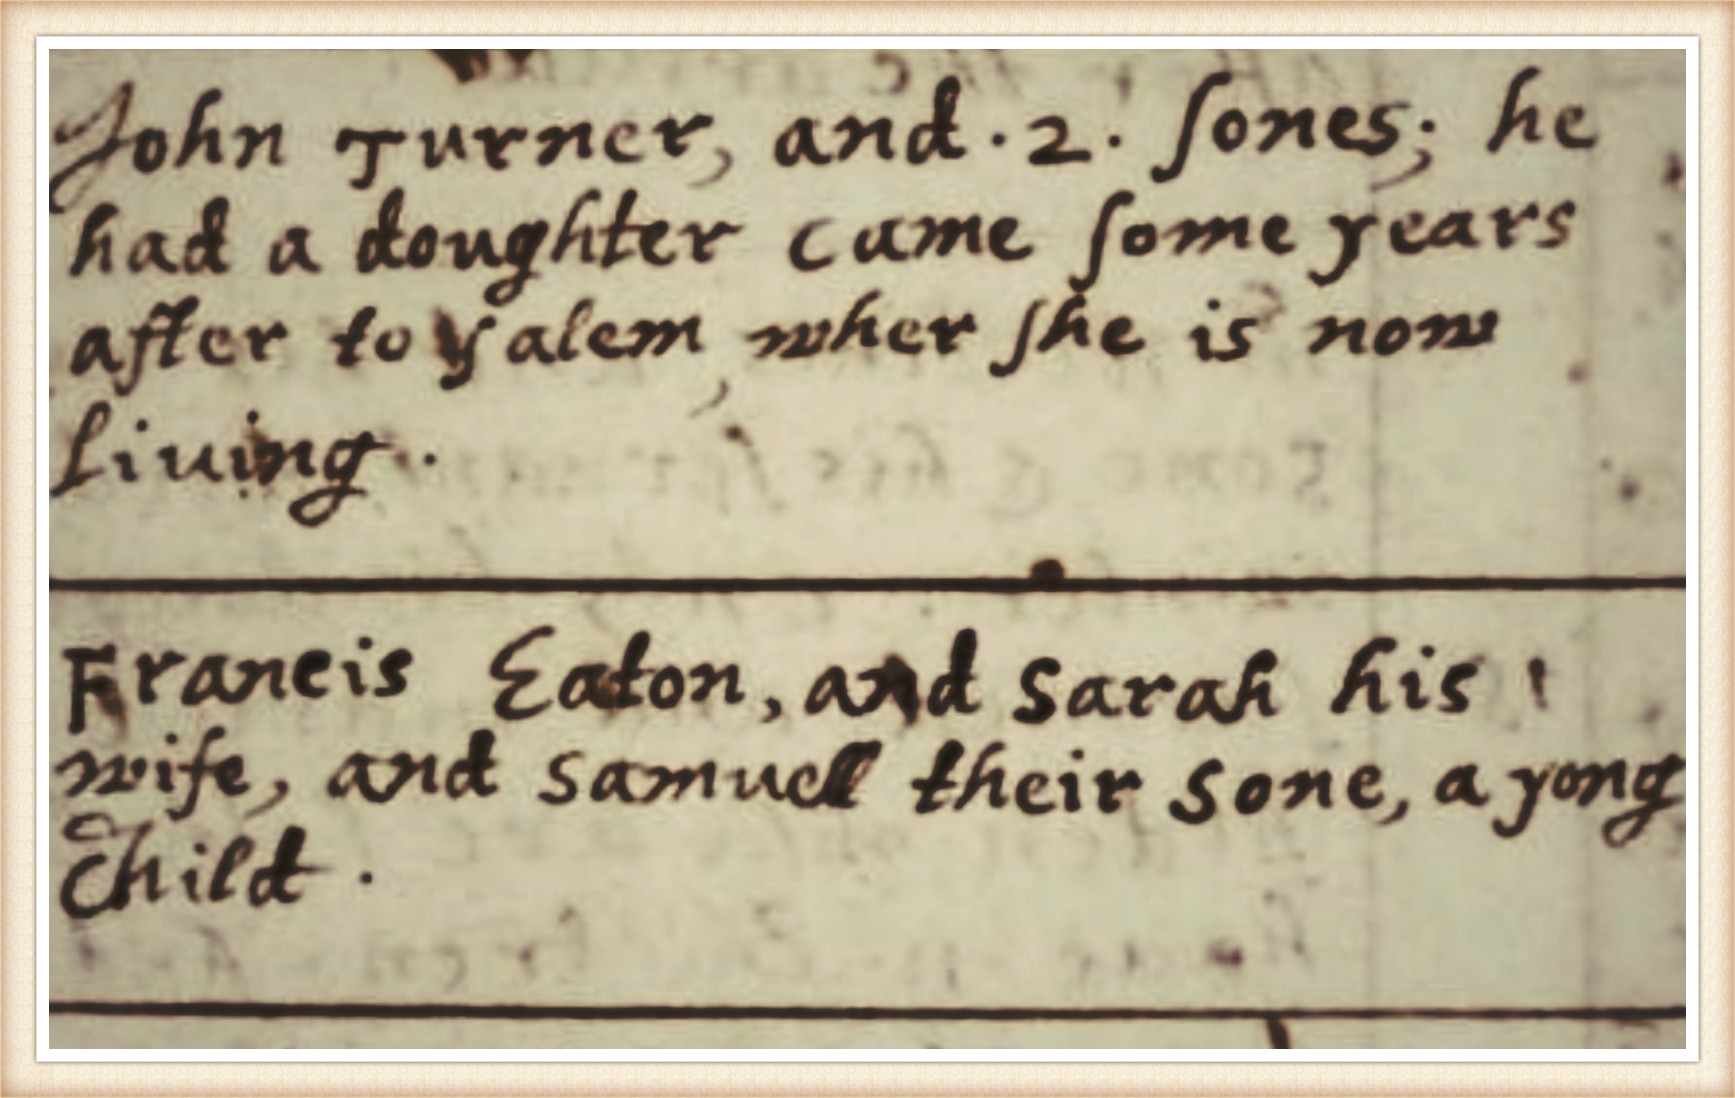 John Turner, and ·2· ſones; he
had a doughter came ſome years
after to Salem, wher ſhe is now
living ·
Francis Eaton, and Sarah his
wife, and Samuell their sone, a yong
Child ·